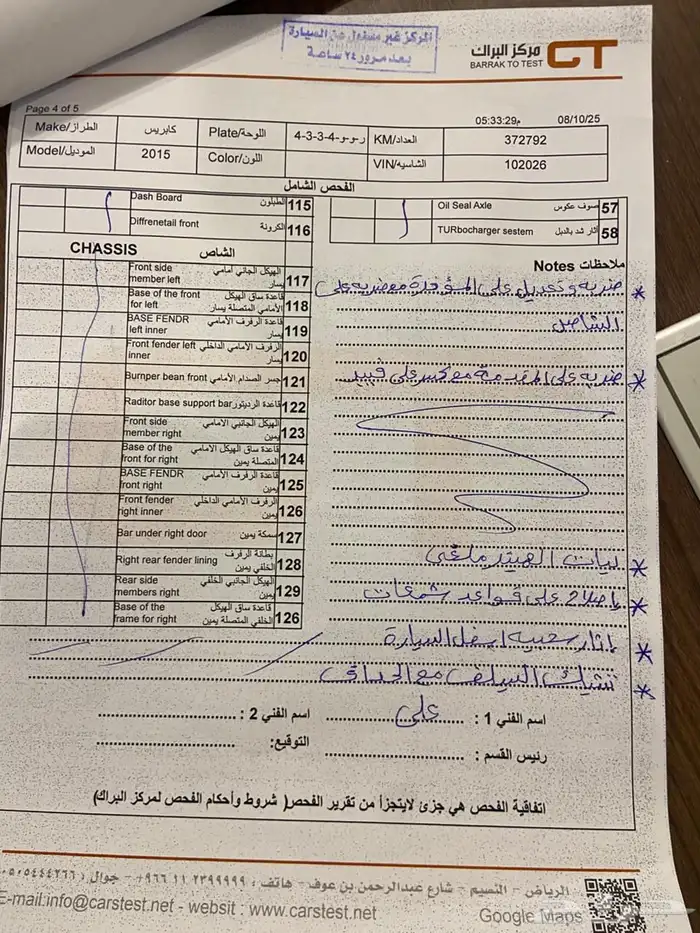 المركز غير مسئول عن السيارة
بعد مرور ٢٤ ساعة
مركز البراك
BARRAK TO TEST
CT
Page 4 of 5
05:33:29م 08/10/25
Make/الطراز كابريس Plate/اللوحة ر-و-و-4-3-3-4 KM/العداد 372792
Model/الموديل 2015 Color/اللون VIN/الشاسيه 102026
الفحص الشامل
Dash Board الطبلون 115
Diffrenetall front الكرونة 116
CHASSIS الشاص
Front side member left الهيكل الجاني أمامي يسار 117
Base of the front for left قاعدة ساق الهيكل الأمامي المتصلة يسار 118
BASE FENDR left inner قاعدة الرفرف الأمامي يسار 119
Front fender left inner الرفرف الأمامي الداخلي يسار 120
Bumper bean front جسر الصدام الأمامي 121
Raditor base support bar قاعدة الرديتور 122
Front side member right الهيكل الجانبي الأمامي يمين 123
Base of the front for right قاعدة ساق الهيكل الأمامي المتصلة يمين 124
BASE FENDR front right قاعدة الرفرف الأمامي يمين 125
Front fender right inner الرفرف الأمامي الداخلي يمين 126
Bar under right door سمكة يمين 127
Right rear fender lining بطانة الرفرف الخلفي يمين 128
Rear side members right الهيكل الجانبي الخلفي يمين 129
Base of the frame for right قاعدة ساق الهيكل الخلفي المتصلة يمين 126
Oil Seal Axle صوف عكوس 57
TURbocharger sestem آثار شد بالدبل 58
Notes ملاحظات
* ضربه وتعديل على المؤخرة مع ضربه على
الشاصل
* ضربه على المقدمة مع كسر على فيبر
* بيات الهيتر ملغي
* اصلاح على قواعد شمعات
* اثار سحبيه اسفل السيارة
* تشيك السلف مع الحداف
اسم الفني 1 : علي
اسم الفني 2 :
رئيس القسم :
التوقيع:
اتفاقية الفحص هي جزئ لايتجزأ من تقرير الفحص( شروط وأحكام الفحص لمركز البراك)
الرياض - النسيم - شارع عبدالرحمن بن عوف - هاتف : ٢٣٩٩٩٩٩ ١١ ٩٦٦+ - جوال :
E-mail:info@carstest.net - websit : www.carstest.net
Google Maps